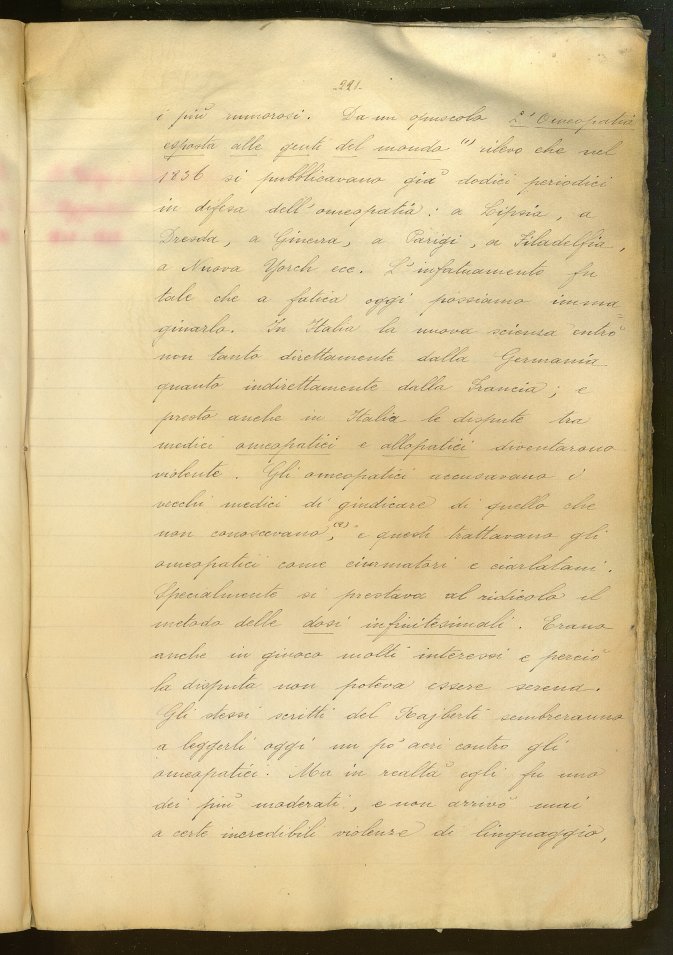 -221-
i più rumorosi. Da un opuscolo L'Omeopatia
esposta alle genti del mondo (1) rilevo che nel
1836 si pubblicavano già dodici periodici
in difesa dell'omeopatia: a Lipsia, a
Dresda, a Ginevra, a Parigi, a Filadelfia,
a Nuova Yorch ecc. L'infatuamento fu
tale che a fatica oggi possiamo imma-
ginarlo. In Italia la nuova scienza entrò
non tanto direttamente dalla Germania
quanto indirettamente dalla Francia; e
presto anche in Italia le dispute tra
medici omeopatici e allopatici diventarono
violente. Gli omeopatici accusavano i
vecchi medici di giudicare di quello che
non conoscevano, (2) e questi trattavano gli
omeopatici come ciurmatori e ciarlatani.
Specialmente si prestava al ridicolo il
metodo delle dosi infinitesimali. Erano
anche in giuoco molti interessi e perciò
la disputa non poteva essere serena.
Gli stessi scritti del Rajberti sembreranno
a leggerli oggi un pò acri contro gli
omeopatici. Ma in realtà egli fu uno
dei più moderati, e non arrivò mai
a certe incredibili violenze di linguaggio,